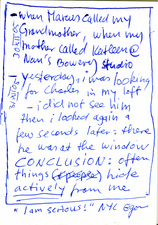 - when Marcus called my
Grandmother, when my
mother called Kathleen @
Nan's Bowery Studio
yesterday: i was looking
for Charles in my loft
- i did not see him
then i looked again a
few seconds later: there
he was at the window
CONCLUSION: often
things hide
actively from me
"I am serious!" NYC Egon